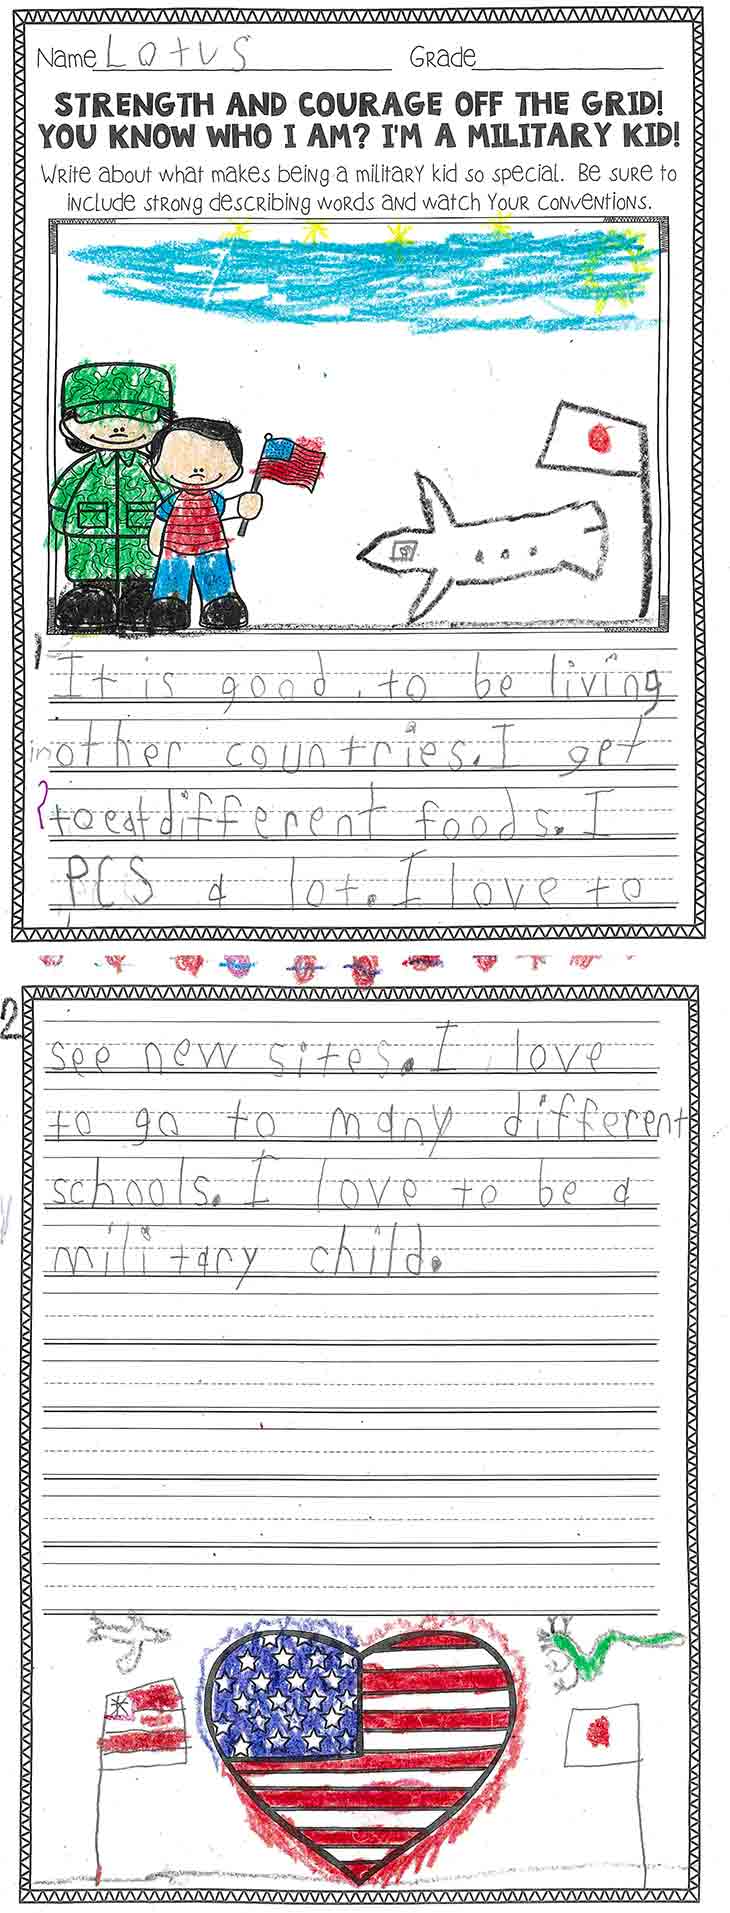 Name Lotus Grade
STRENGTH AND COURAGE OFF THE GRID!
YOU KNOW WHO I AM? I'M A MILITARY KID!
Write about what makes being a military kid so special. Be sure to
include strong describing words and watch your conventions.
1
It is good to be living
in other countries. I get
to eat different foods. I
PCS a lot. I love to
2
see new sites. I love
to go to many different
schools. I love to be a
military child.